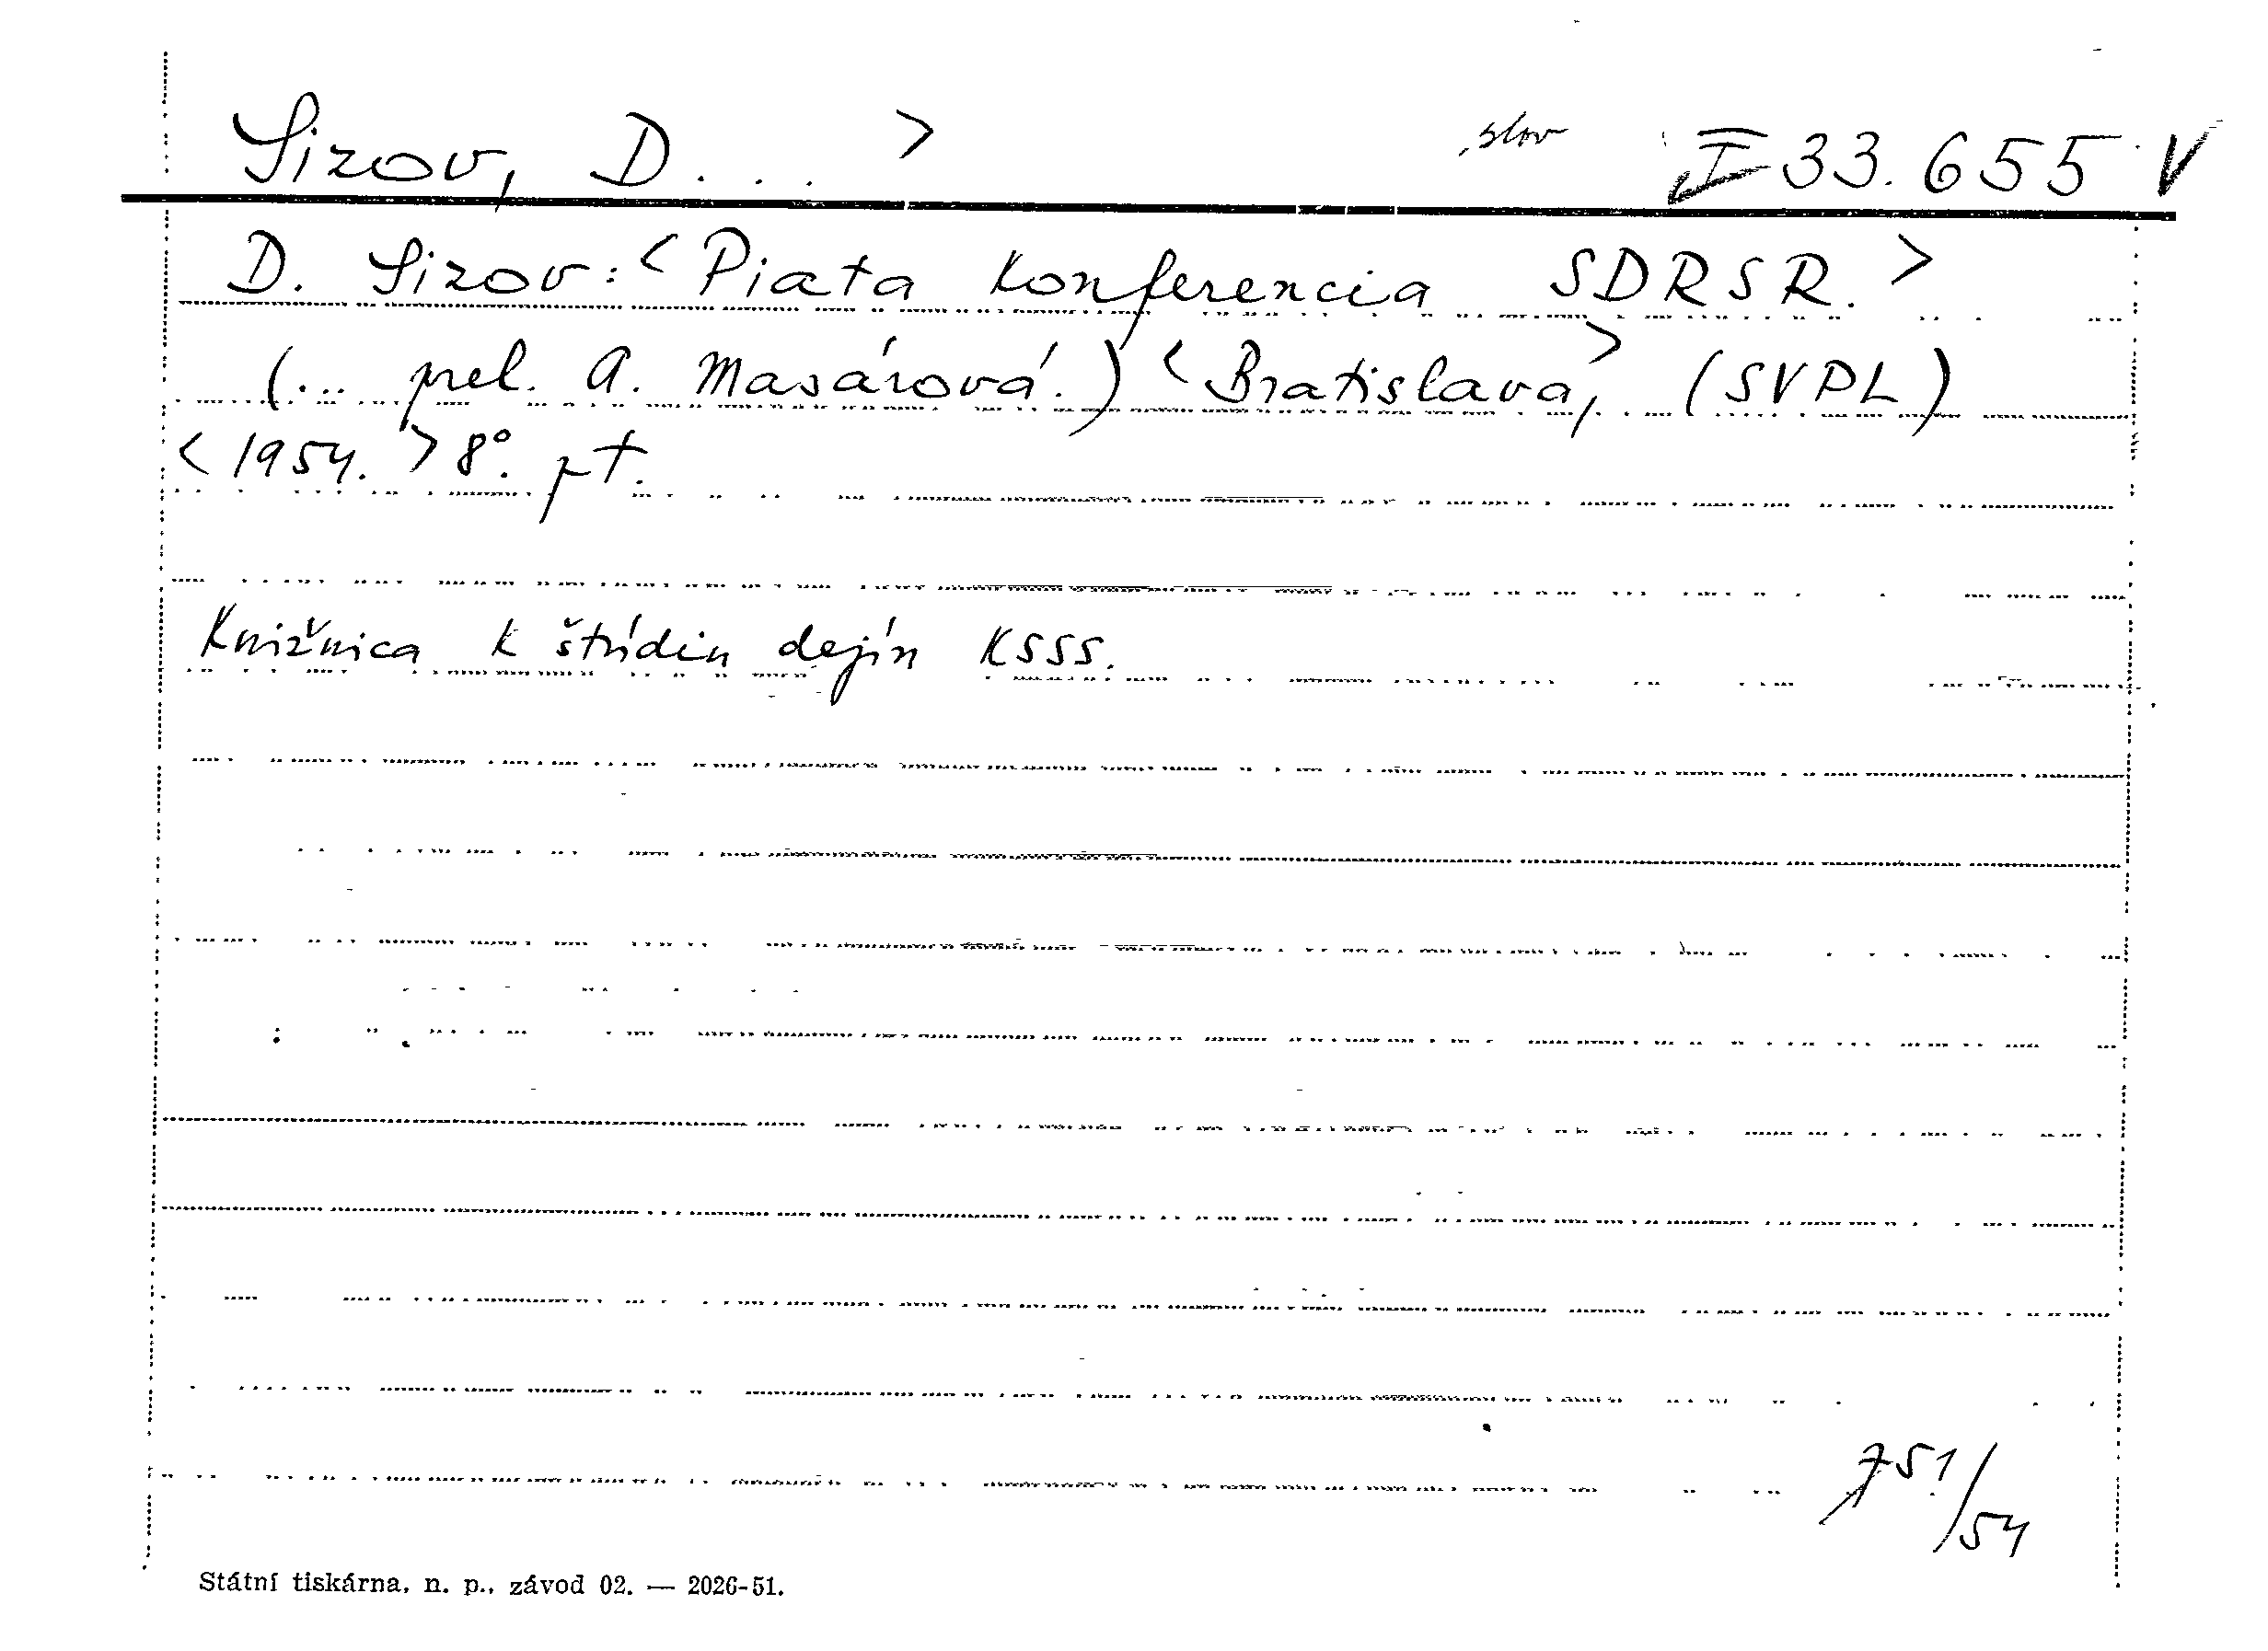 Sizov, D... > slov I 33.655 V
D. Sizov: <Piata konferencia SDRSR.>
(... prel. A. Masárová.) <Bratislava,> (SVPL)
<1954.> 8°. pt.
Knižnica k štúdiu dejín KSSS.
751/54
Státní tiskárna, n. p., závod 02. — 2026-51.